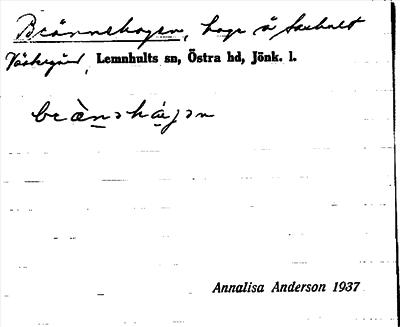 Brännehagen, hage å Saxhult
Västergård, Lemnhults sn, Östra hd, Jönk. l.
brànəháɡən
Annalisa Anderson 1937